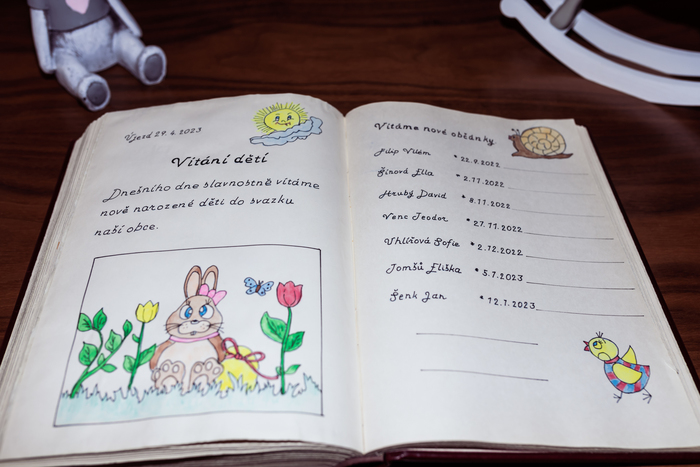 Újezd 29. 4. 2023
Vítání dětí
Dnešního dne slavnostně vítáme
nově narozené děti do svazku
naší obce.
Vítáme nové občánky
Filip Vilém * 22.9.2022
Šírová Ella * 2.11.2022
Hrubý David * 8.11.2022
Venc Teodor * 27.11.2022
Uhlířová Sofie * 2.12.2022
Tomšů Eliška * 5.1.2023
Šenk Jan * 12.1.2023